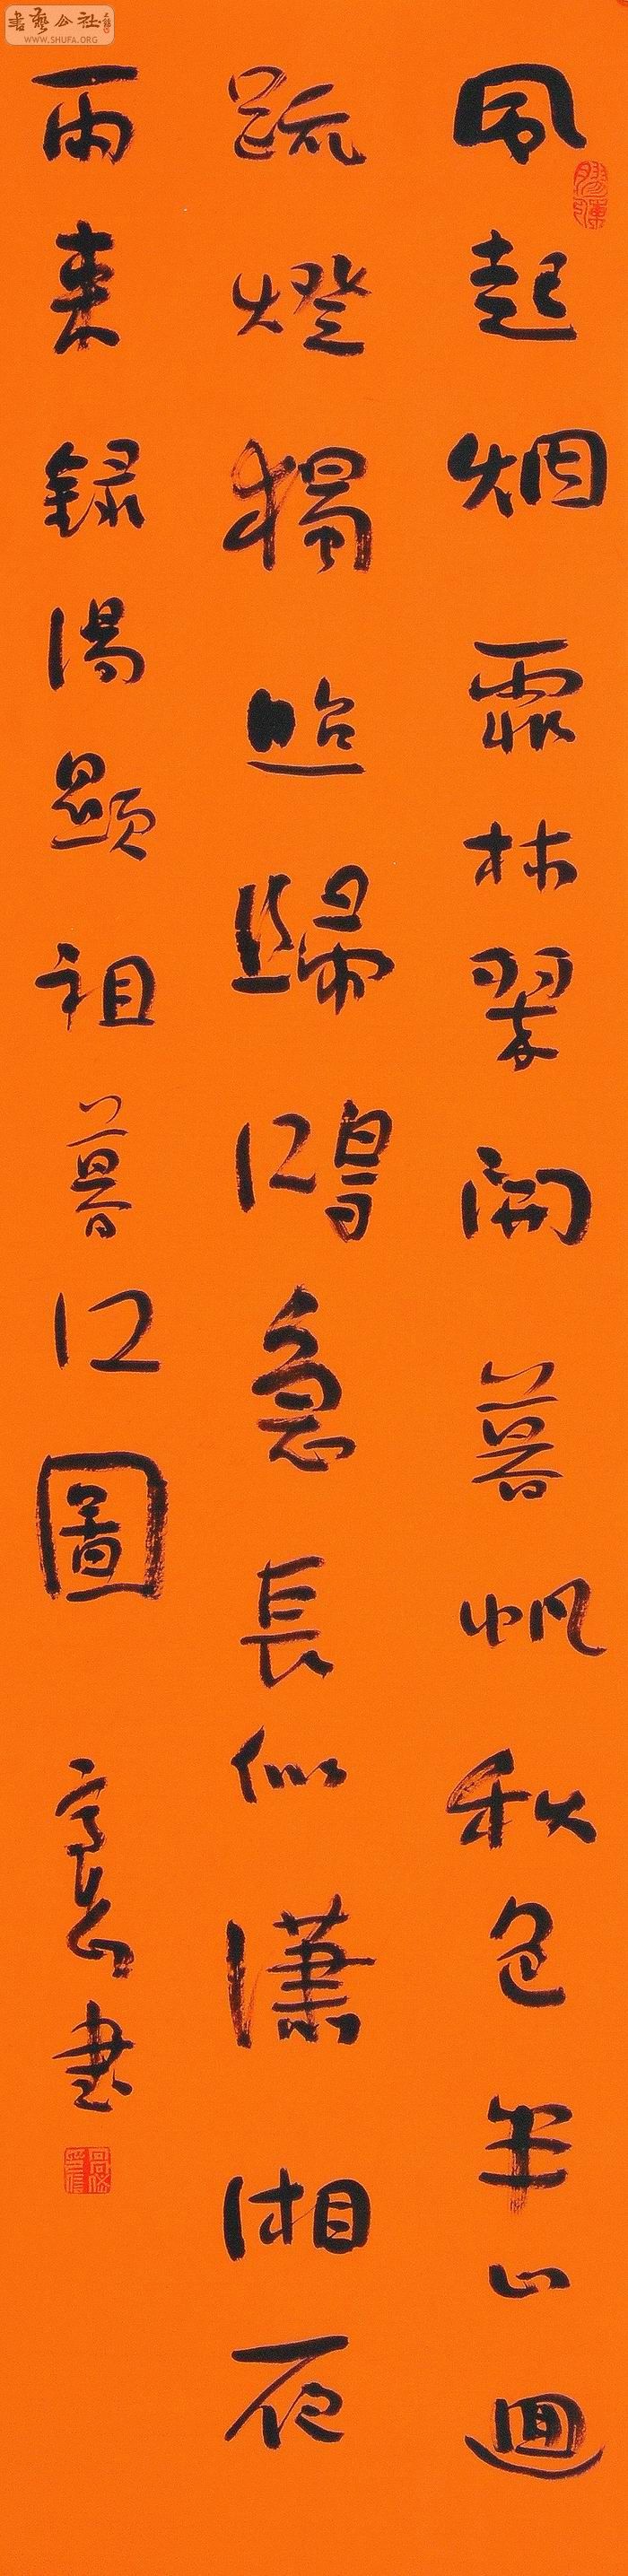 風起烟霏林翠開暮帆秋色半山迴
疏燈獨照歸鴻急長似瀟湘夜
雨来録湯顯祖暮江圖
書
書藝公社
WWW.SHUFA.ORG